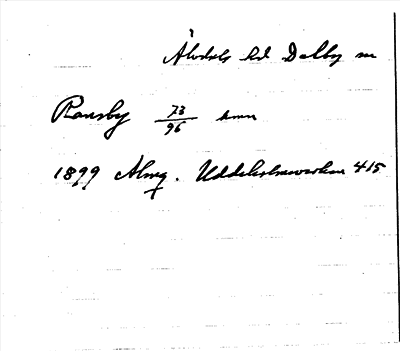 Älvdals hd Dalby sn
Ransby 73/96 hmn
1899 Älvsg. Uddeholmsverken 415